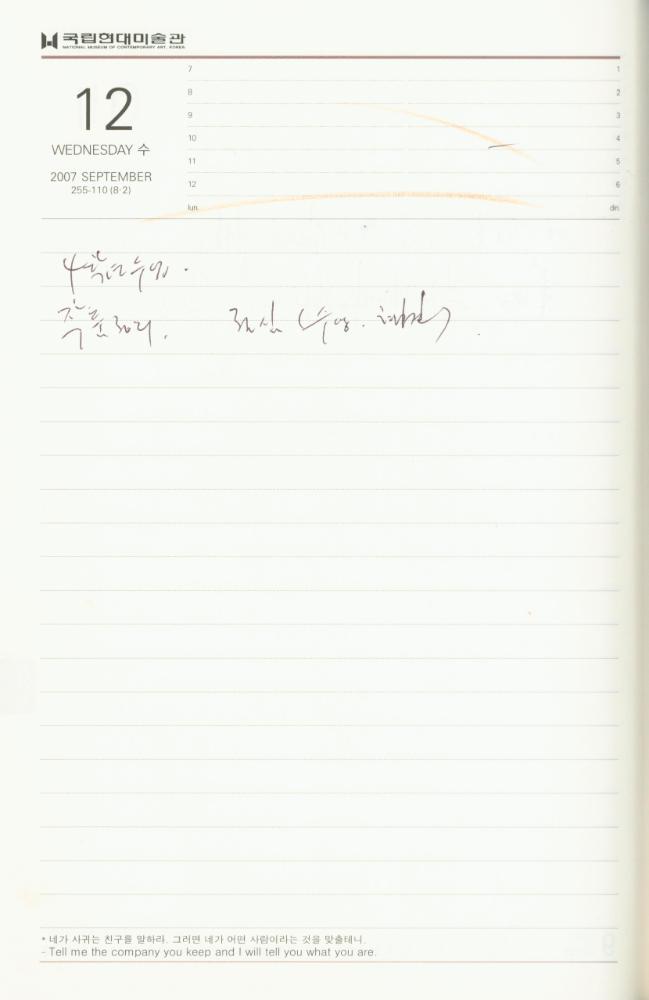 국립현대미술관
NATIONAL MUSEUM OF CONTEMPORARY ART, KOREA
12
WEDNESDAY 수
2007 SEPTEMBER
255-110 (8·2)
7 1
8 2
9 3
10 4
11 5
12 6
lun. din.
4학년 수업.
작품정리. 점심 (수영.
* 네가 사귀는 친구를 말하라. 그러면 네가 어떤 사람이라는 것을 맞출테니.
- Tell me the company you keep and I will tell you what you are.